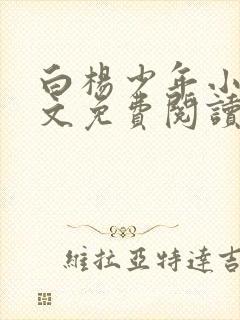 白楊少年小
文免費閱讀
維拉亞特達吉